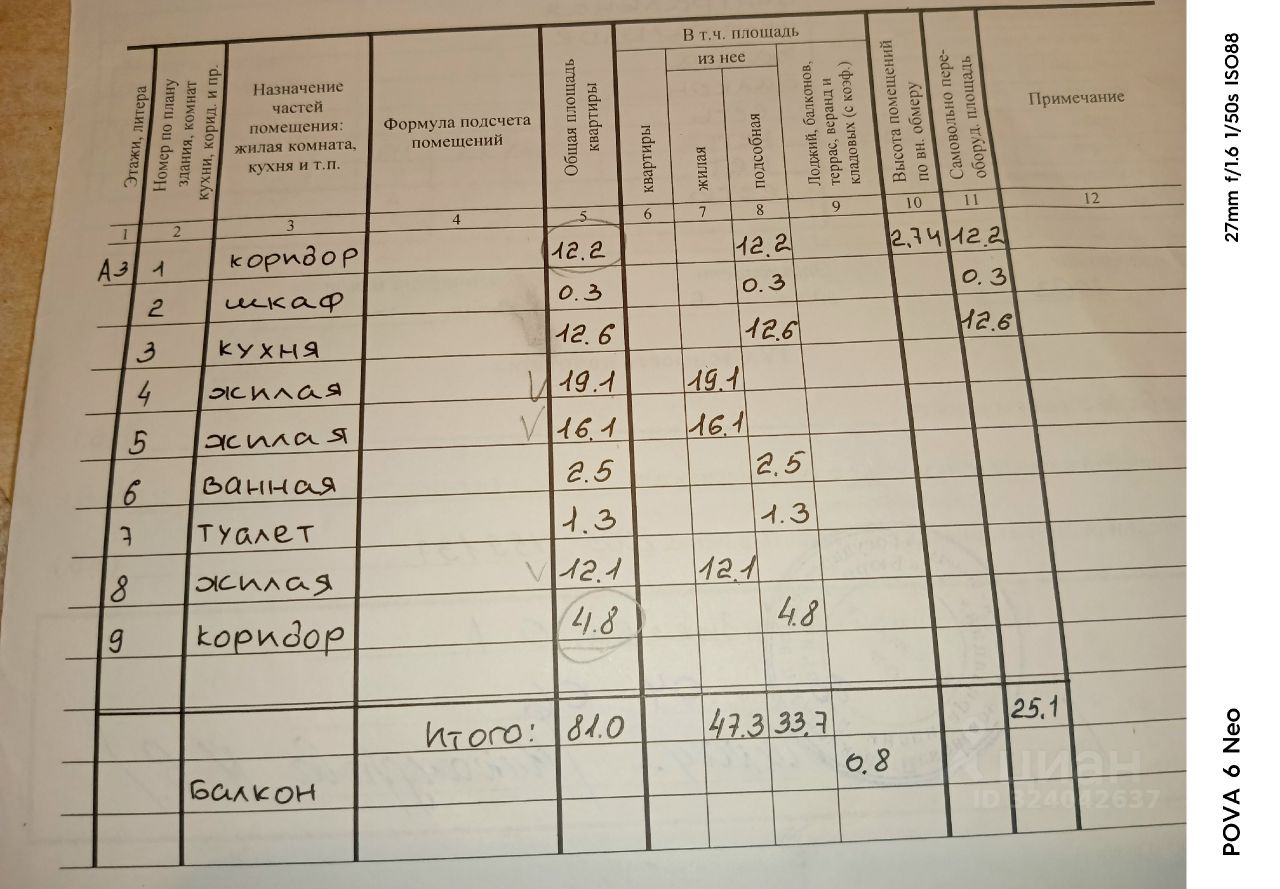 В т.ч. площадь
из нее
Этажи, литера
Номер по плану здания, комнат кухни, корид. и пр.
Назначение частей помещения: жилая комната, кухня и т.п.
Формула подсчета помещений
Общая площадь квартиры
квартиры
жилая
подсобная
Лоджий, балконов, террас, веранд и кладовых (с коэф.)
Высота помещений по вн. обмеру
Самовольно пере- оборуд. площадь
Примечание
1 2 3 4 5 6 7 8 9 10 11 12
А3 1 коридор 12.2 12.2 2.74 12.2
2 шкаф 0.3 0.3 0.3
3 кухня 12.6 12.6 12.6
4 жилая 19.1 19.1
5 жилая 16.1 16.1
6 ванная 2.5 2.5
7 туалет 1.3 1.3
8 жилая 12.1 12.1
9 коридор 4.8 4.8
Итого: 81.0 47.3 33.7 25.1
Балкон 0.8
циан
ID 324042637
27mm f/1.6 1/50s ISO88
POVA 6 Neo